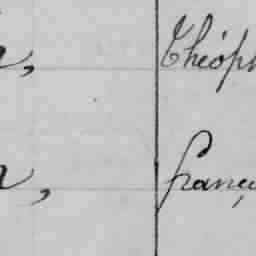 , Théoph
, franç